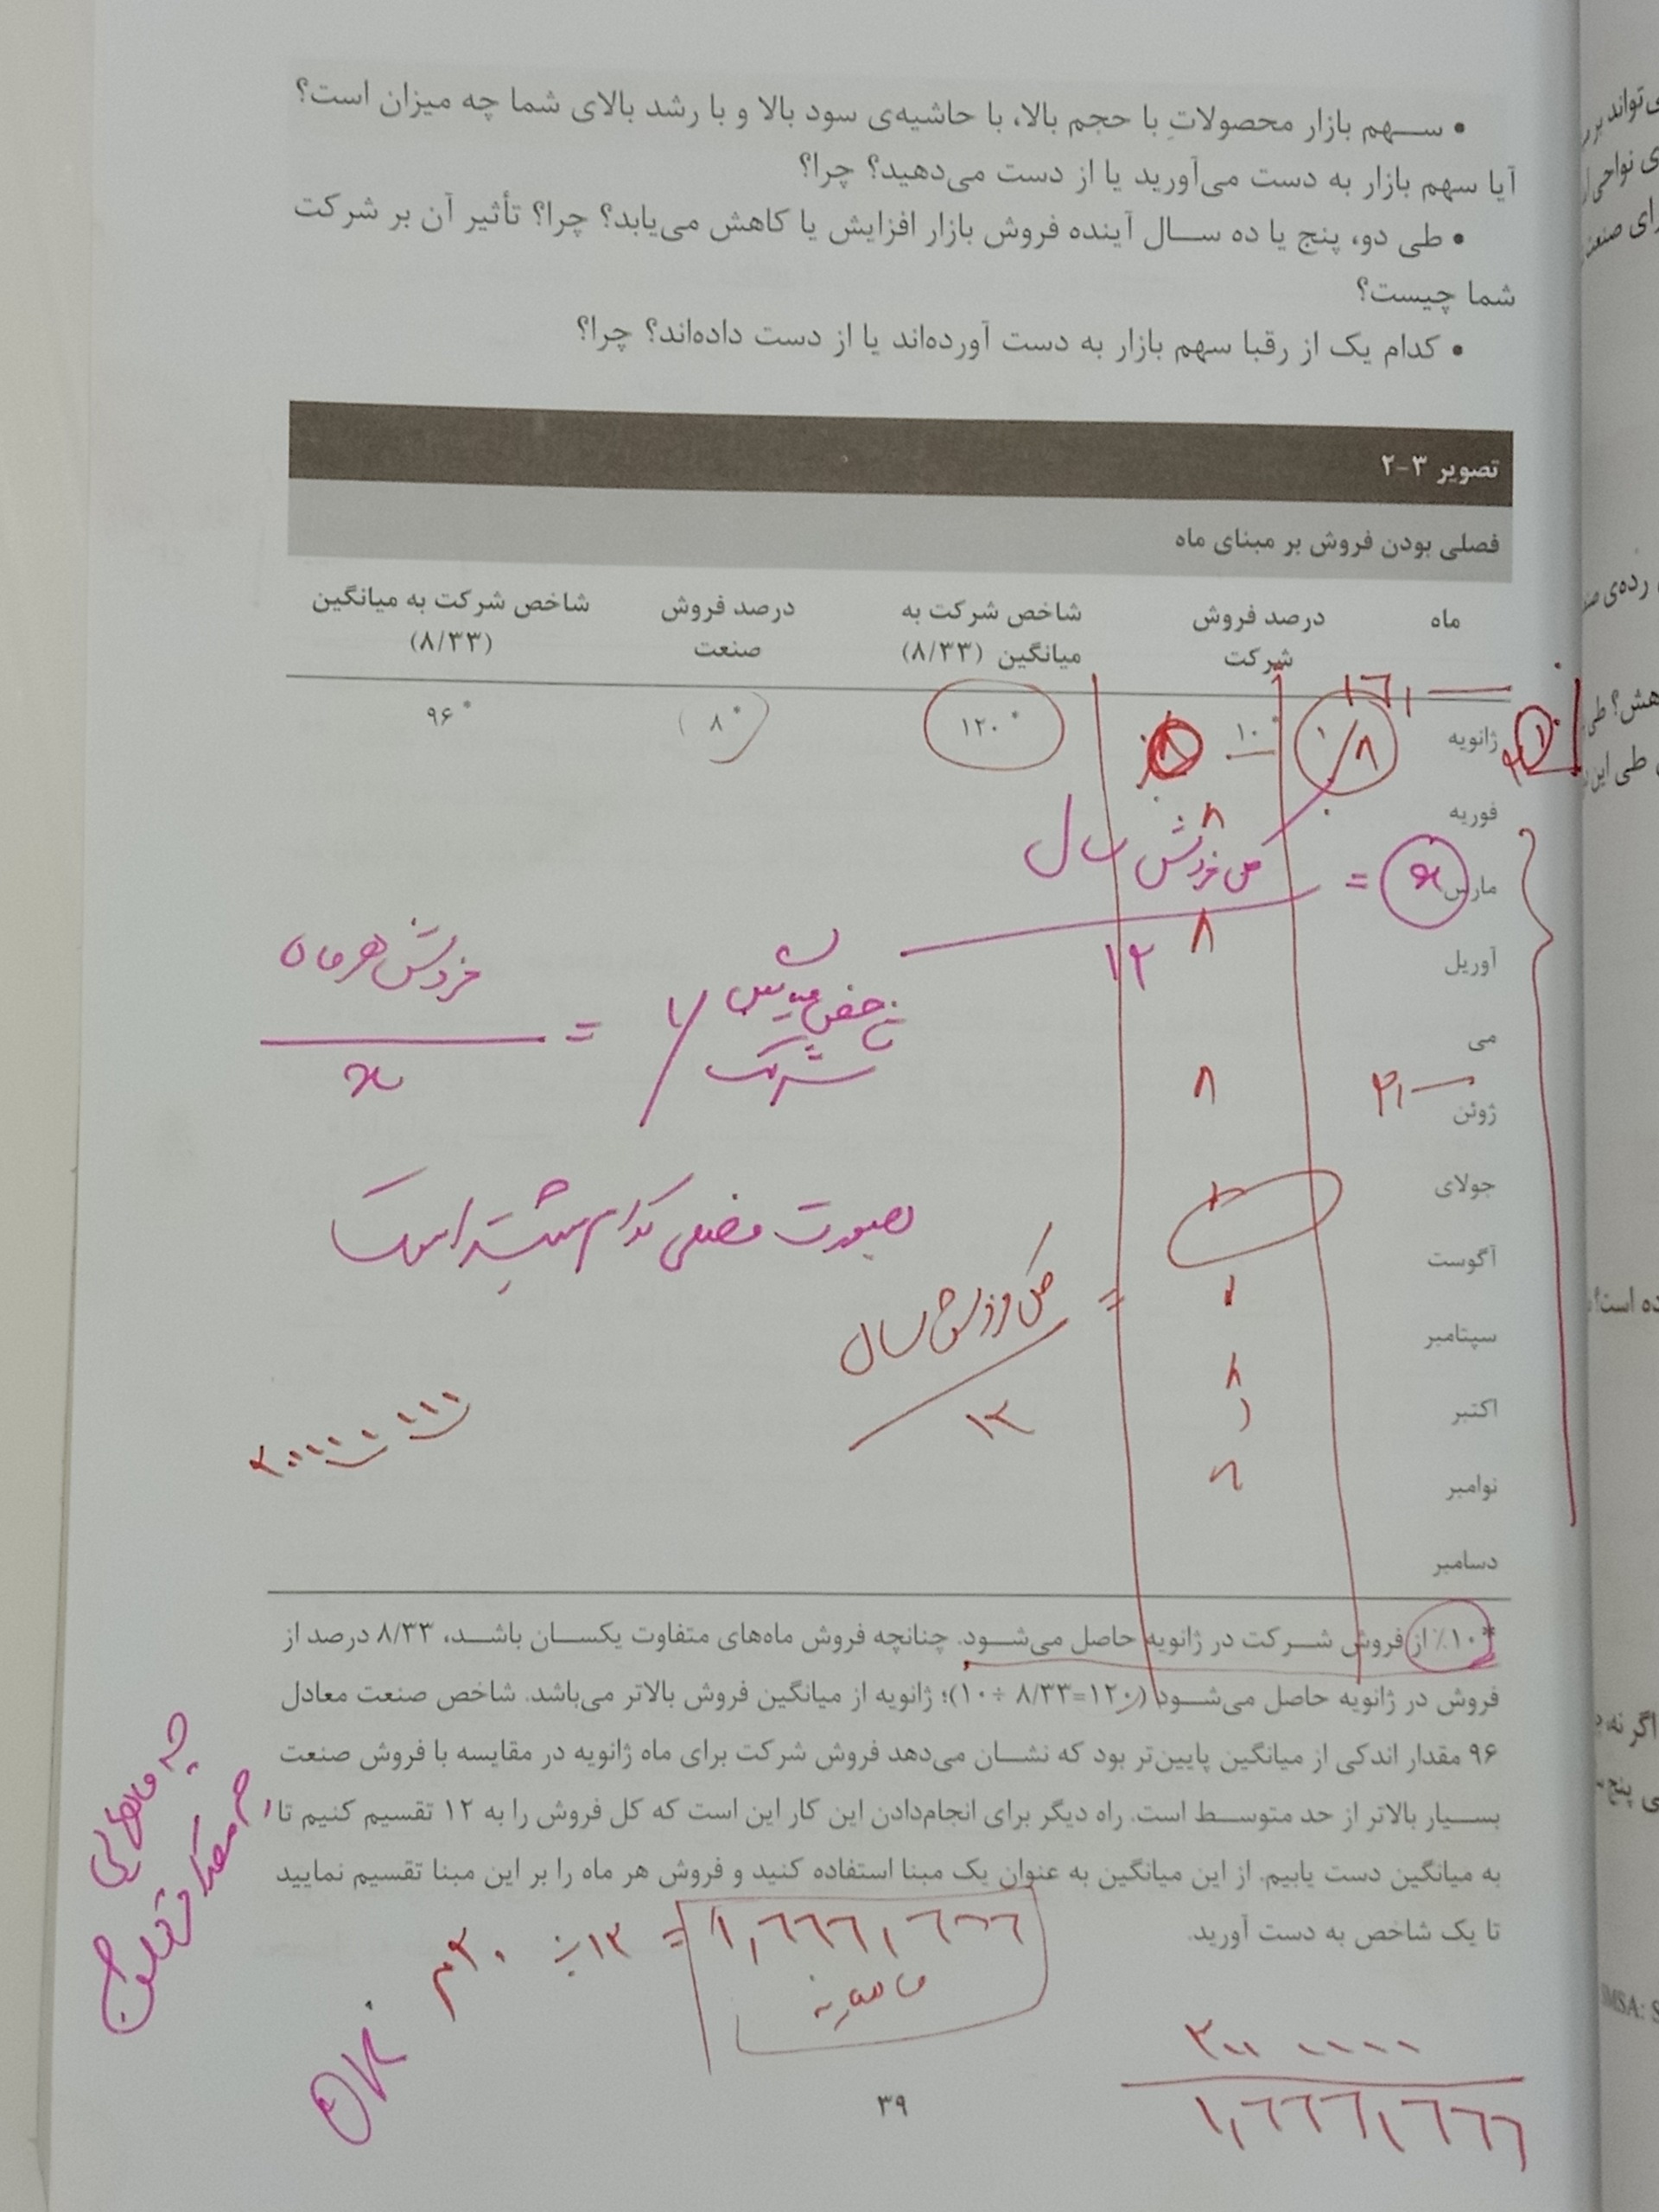 • سهم بازار محصولاتِ با حجم بالا، با حاشیه‌ی سود بالا و با رشد بالای شما چه میزان است؟
آیا سهم بازار به دست می‌آورید یا از دست می‌دهید؟ چرا؟
• طی دو، پنج یا ده سال آینده فروش بازار افزایش یا کاهش می‌یابد؟ چرا؟ تأثیر آن بر شرکت
شما چیست؟
• کدام یک از رقبا سهم بازار به دست آورده‌اند یا از دست داده‌اند؟ چرا؟
تصویر ۳-۲
فصلی بودن فروش بر مبنای ماه
ماه درصد فروش شرکت شاخص شرکت به میانگین (۸/۳۳) درصد فروش صنعت شاخص شرکت به میانگین (۸/۳۳)
ژانویه ۱۰* ۱۲۰* ۸* ۹۶*
فوریه
مارس
آوریل
می
ژوئن
جولای
آگوست
سپتامبر
اکتبر
نوامبر
دسامبر
کل فروش سال
۱۲
= x
فروش هر ماه
x
=
شرکت
بصورت فصلی کدام بیشتر است
کل فروش سال
۱۲
=
*۱۰٪ از فروش شرکت در ژانویه حاصل می‌شود. چنانچه فروش ماه‌های متفاوت یکسان باشد، ۸/۳۳ درصد از
فروش در ژانویه حاصل می‌شود (۱۲۰=۸/۳۳ ÷ ۱۰)؛ ژانویه از میانگین فروش بالاتر می‌باشد. شاخص صنعت معادل
۹۶ مقدار اندکی از میانگین پایین‌تر بود که نشان می‌دهد فروش شرکت برای ماه ژانویه در مقایسه با فروش صنعت
بسیار بالاتر از حد متوسط است. راه دیگر برای انجام‌دادن این کار این است که کل فروش را به ۱۲ تقسیم کنیم تا
به میانگین دست یابیم. از این میانگین به عنوان یک مبنا استفاده کنید و فروش هر ماه را بر این مبنا تقسیم نمایید
تا یک شاخص به دست آورید.
۲۰م ÷ ۱۲ = ۱,۶۶۶,۶۶۶
ماهیانه
چه ماههایی
OK
۱,۶۶۶,۶۶۶
۳۹